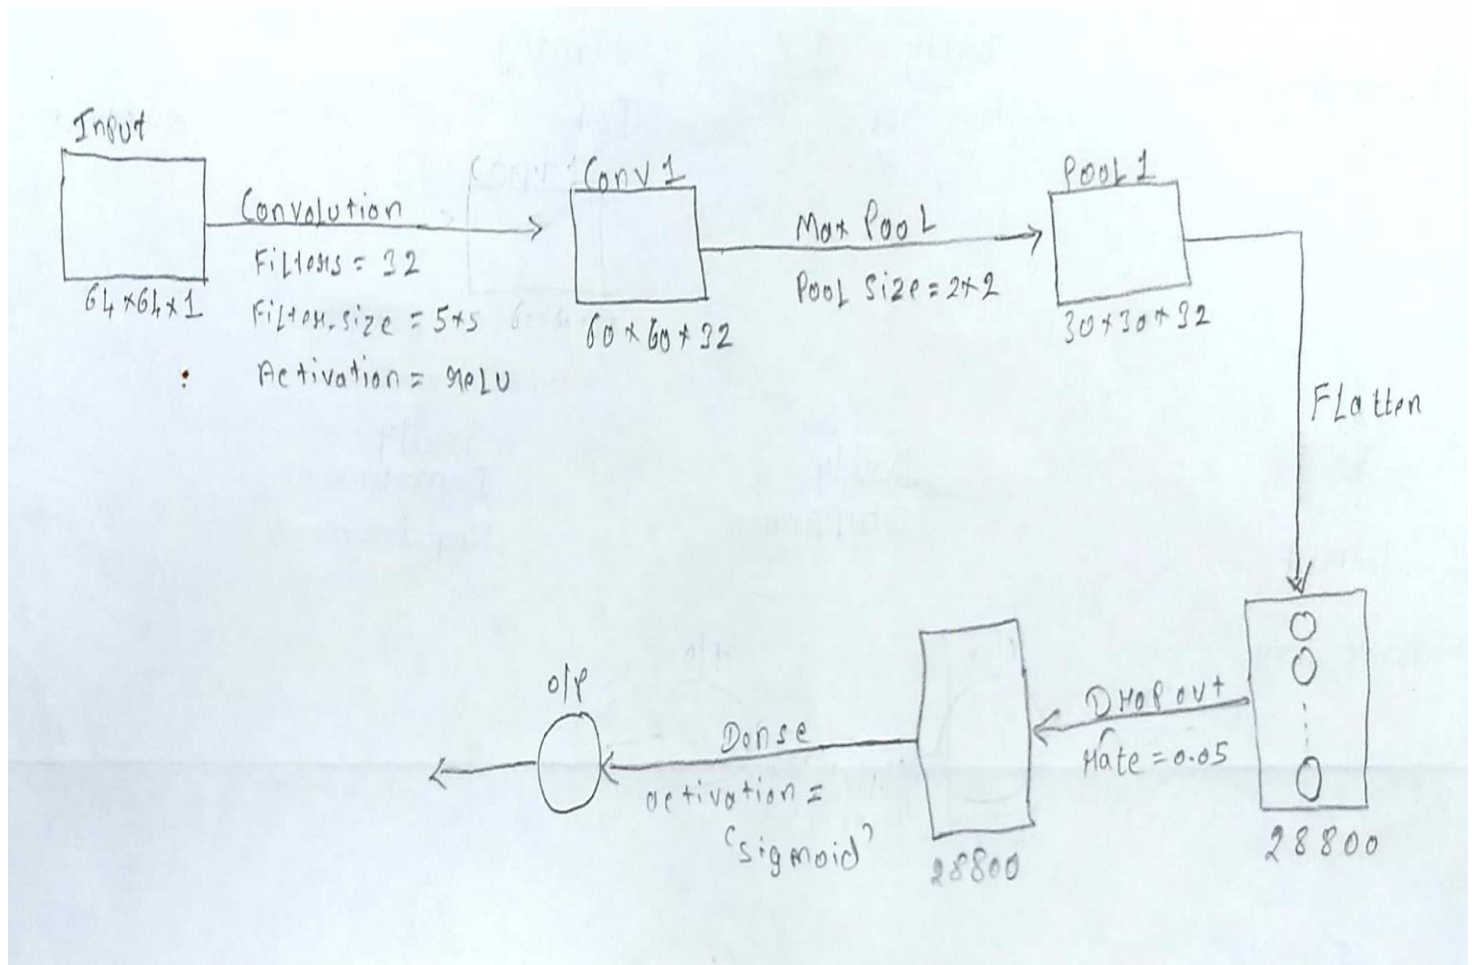 Input
64×64×1
Convolution
Filters = 32
Filter.size = 5×5
Activation = reLU
Conv 1
60×60×32
Max Pool
Pool Size = 2×2
Pool 1
30×30×32
Flatten
28800
Dropout
rate = 0.05
28800
Dense
activation =
'sigmoid'
o/p